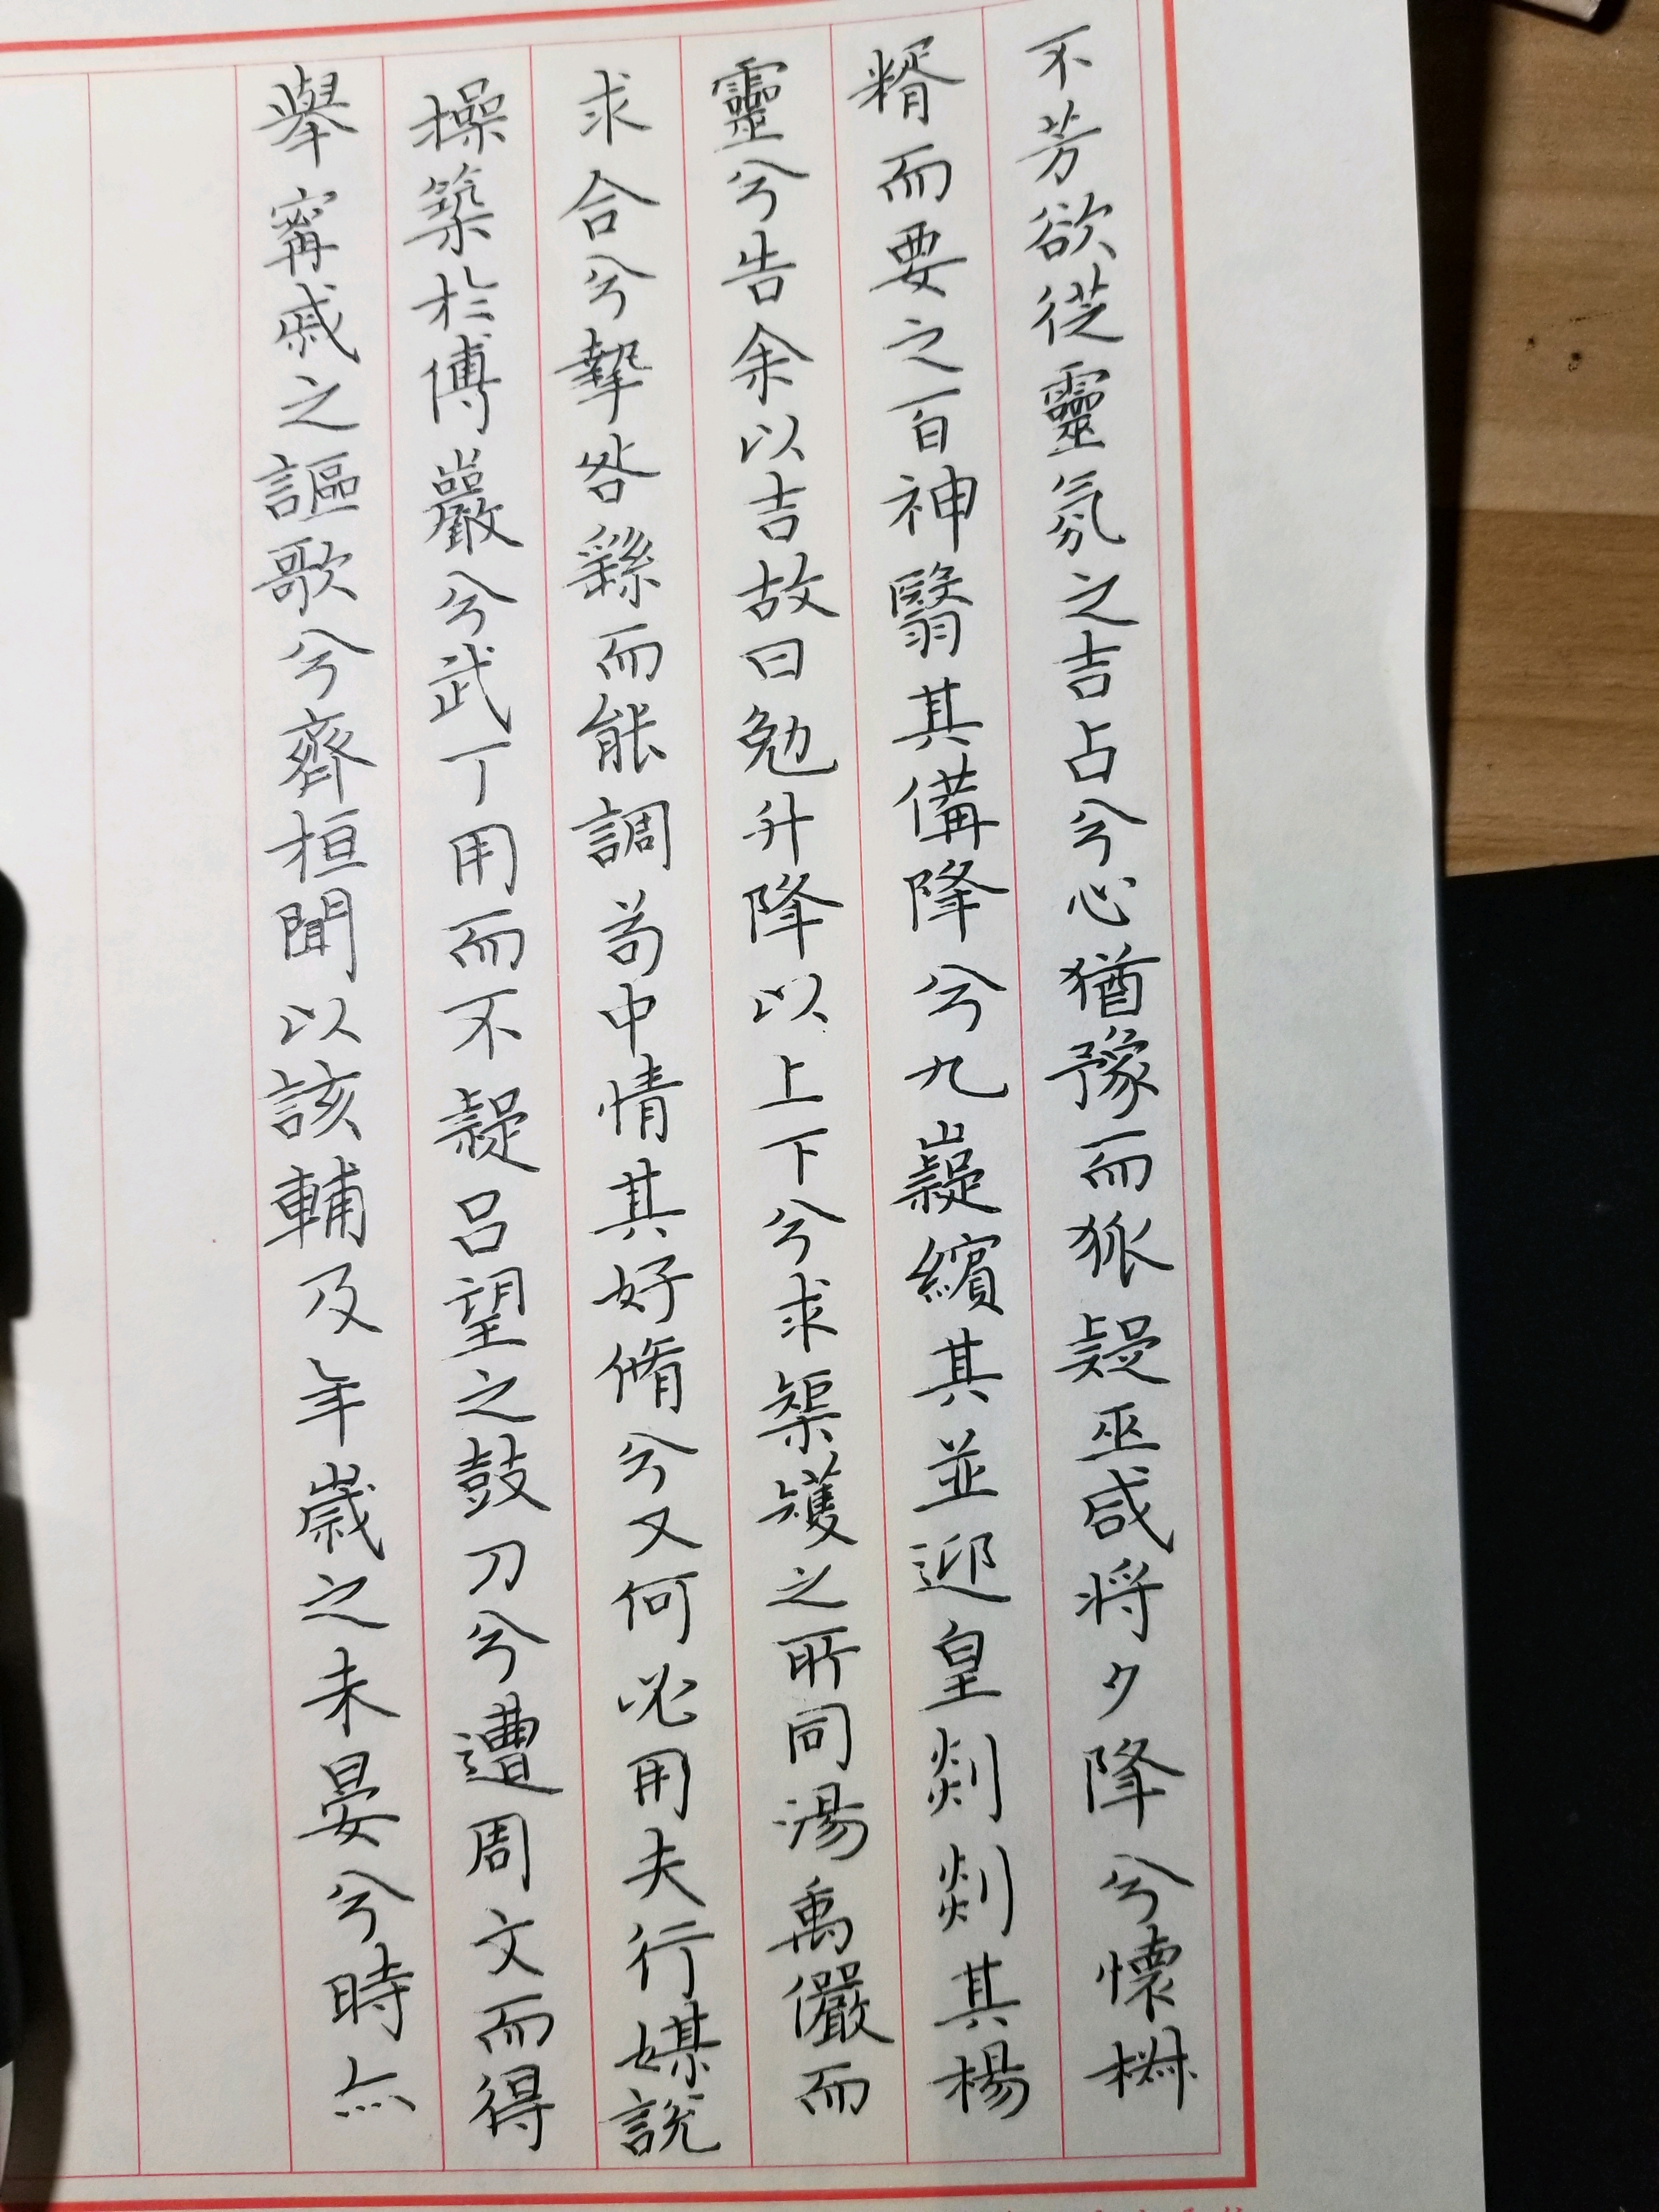 不芳欲從靈氛之吉占兮心猶豫而狐疑巫咸將夕降兮懷椒
糈而要之百神翳其備降兮九嶷繽其並迎皇剡剡其楊
靈兮告余以吉故曰勉升降以上下兮求榘矱之所同湯禹儼而
求合兮摯咎繇而能調苟中情其好脩兮又何必用夫行媒說
操築於傅巖兮武丁用而不疑呂望之鼓刀兮遭周文而得
舉甯戚之謳歌兮齊桓聞以該輔及年歲之未晏兮時亦